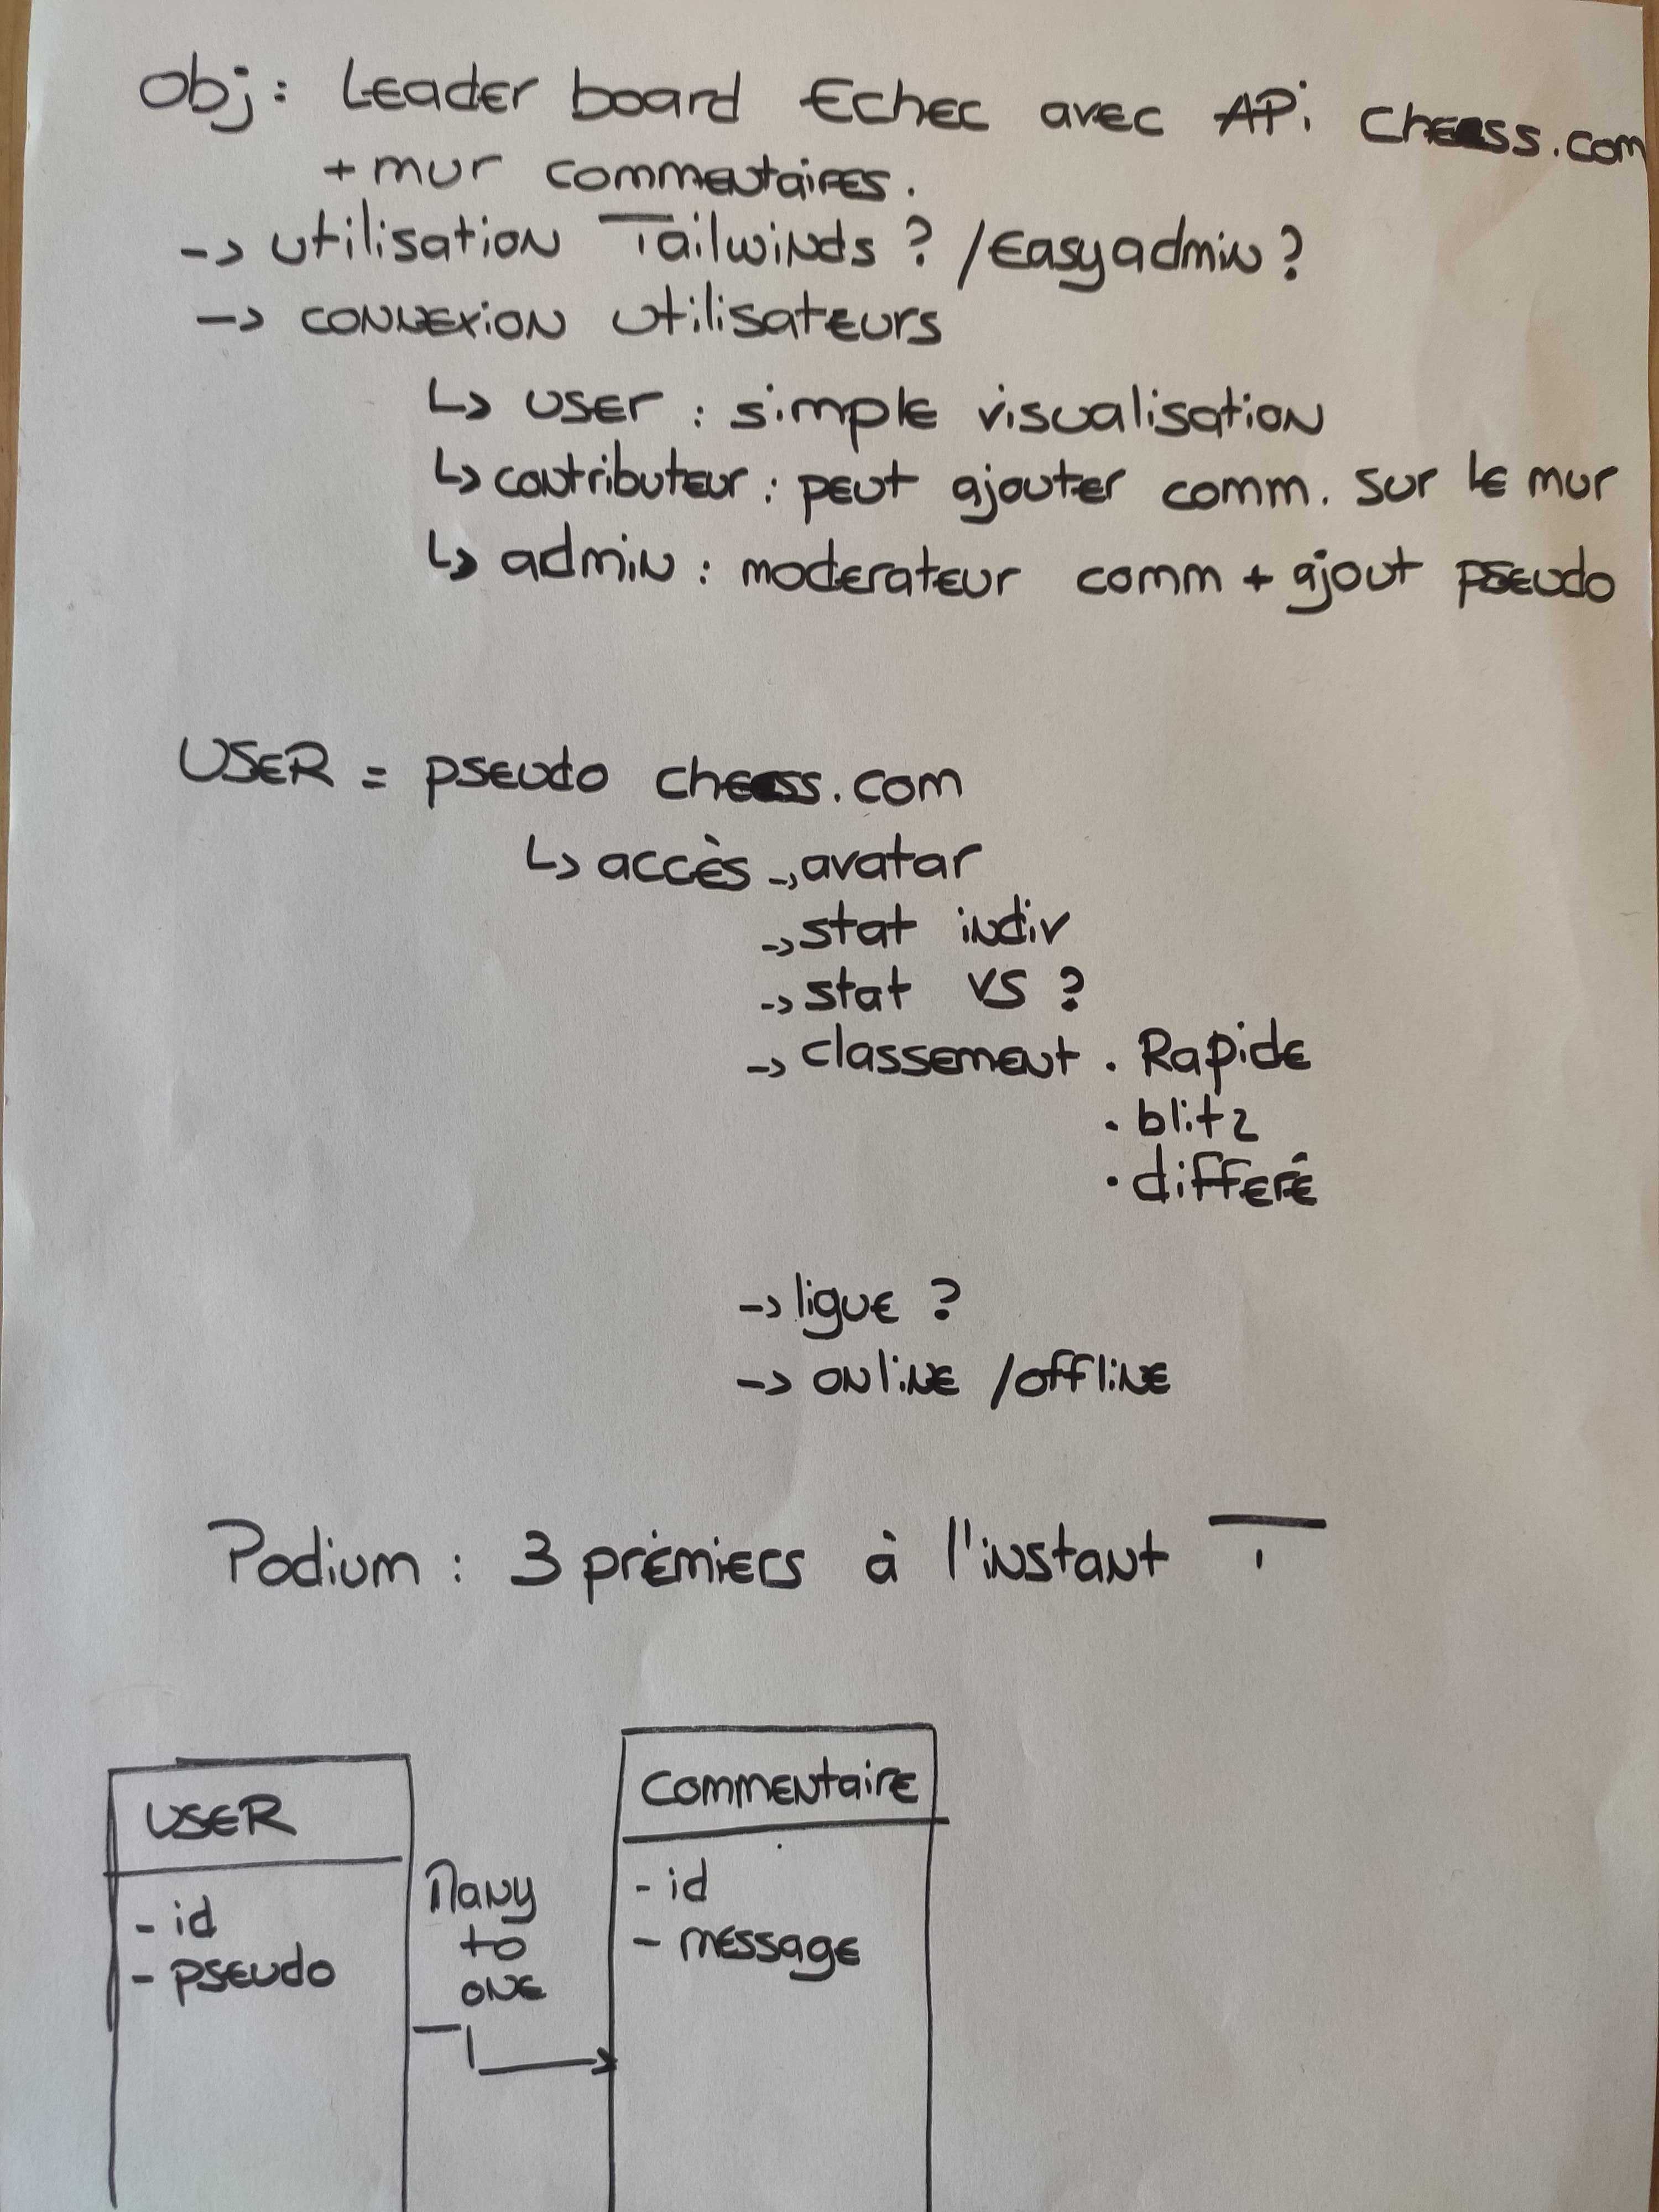 Obj : Leader board Echec avec APi Chess.com
+ mur commentaires.
-> utilisation Tailwinds ? /Easyadmin ?
-> connexion utilisateurs
↳ user : simple visualisation
↳ contributeur : peut ajouter comm. sur le mur
↳ admin : moderateur comm + ajout pseudo
USER = pseudo chess.com
↳ accès -> avatar
-> stat indiv
-> stat VS ?
-> classement . Rapide
. blitz
. differé
-> ligue ?
-> online /offline
Podium : 3 premiers à l'instant T
USER
- id
- pseudo
Many
to
one
Commentaire
- id
- message